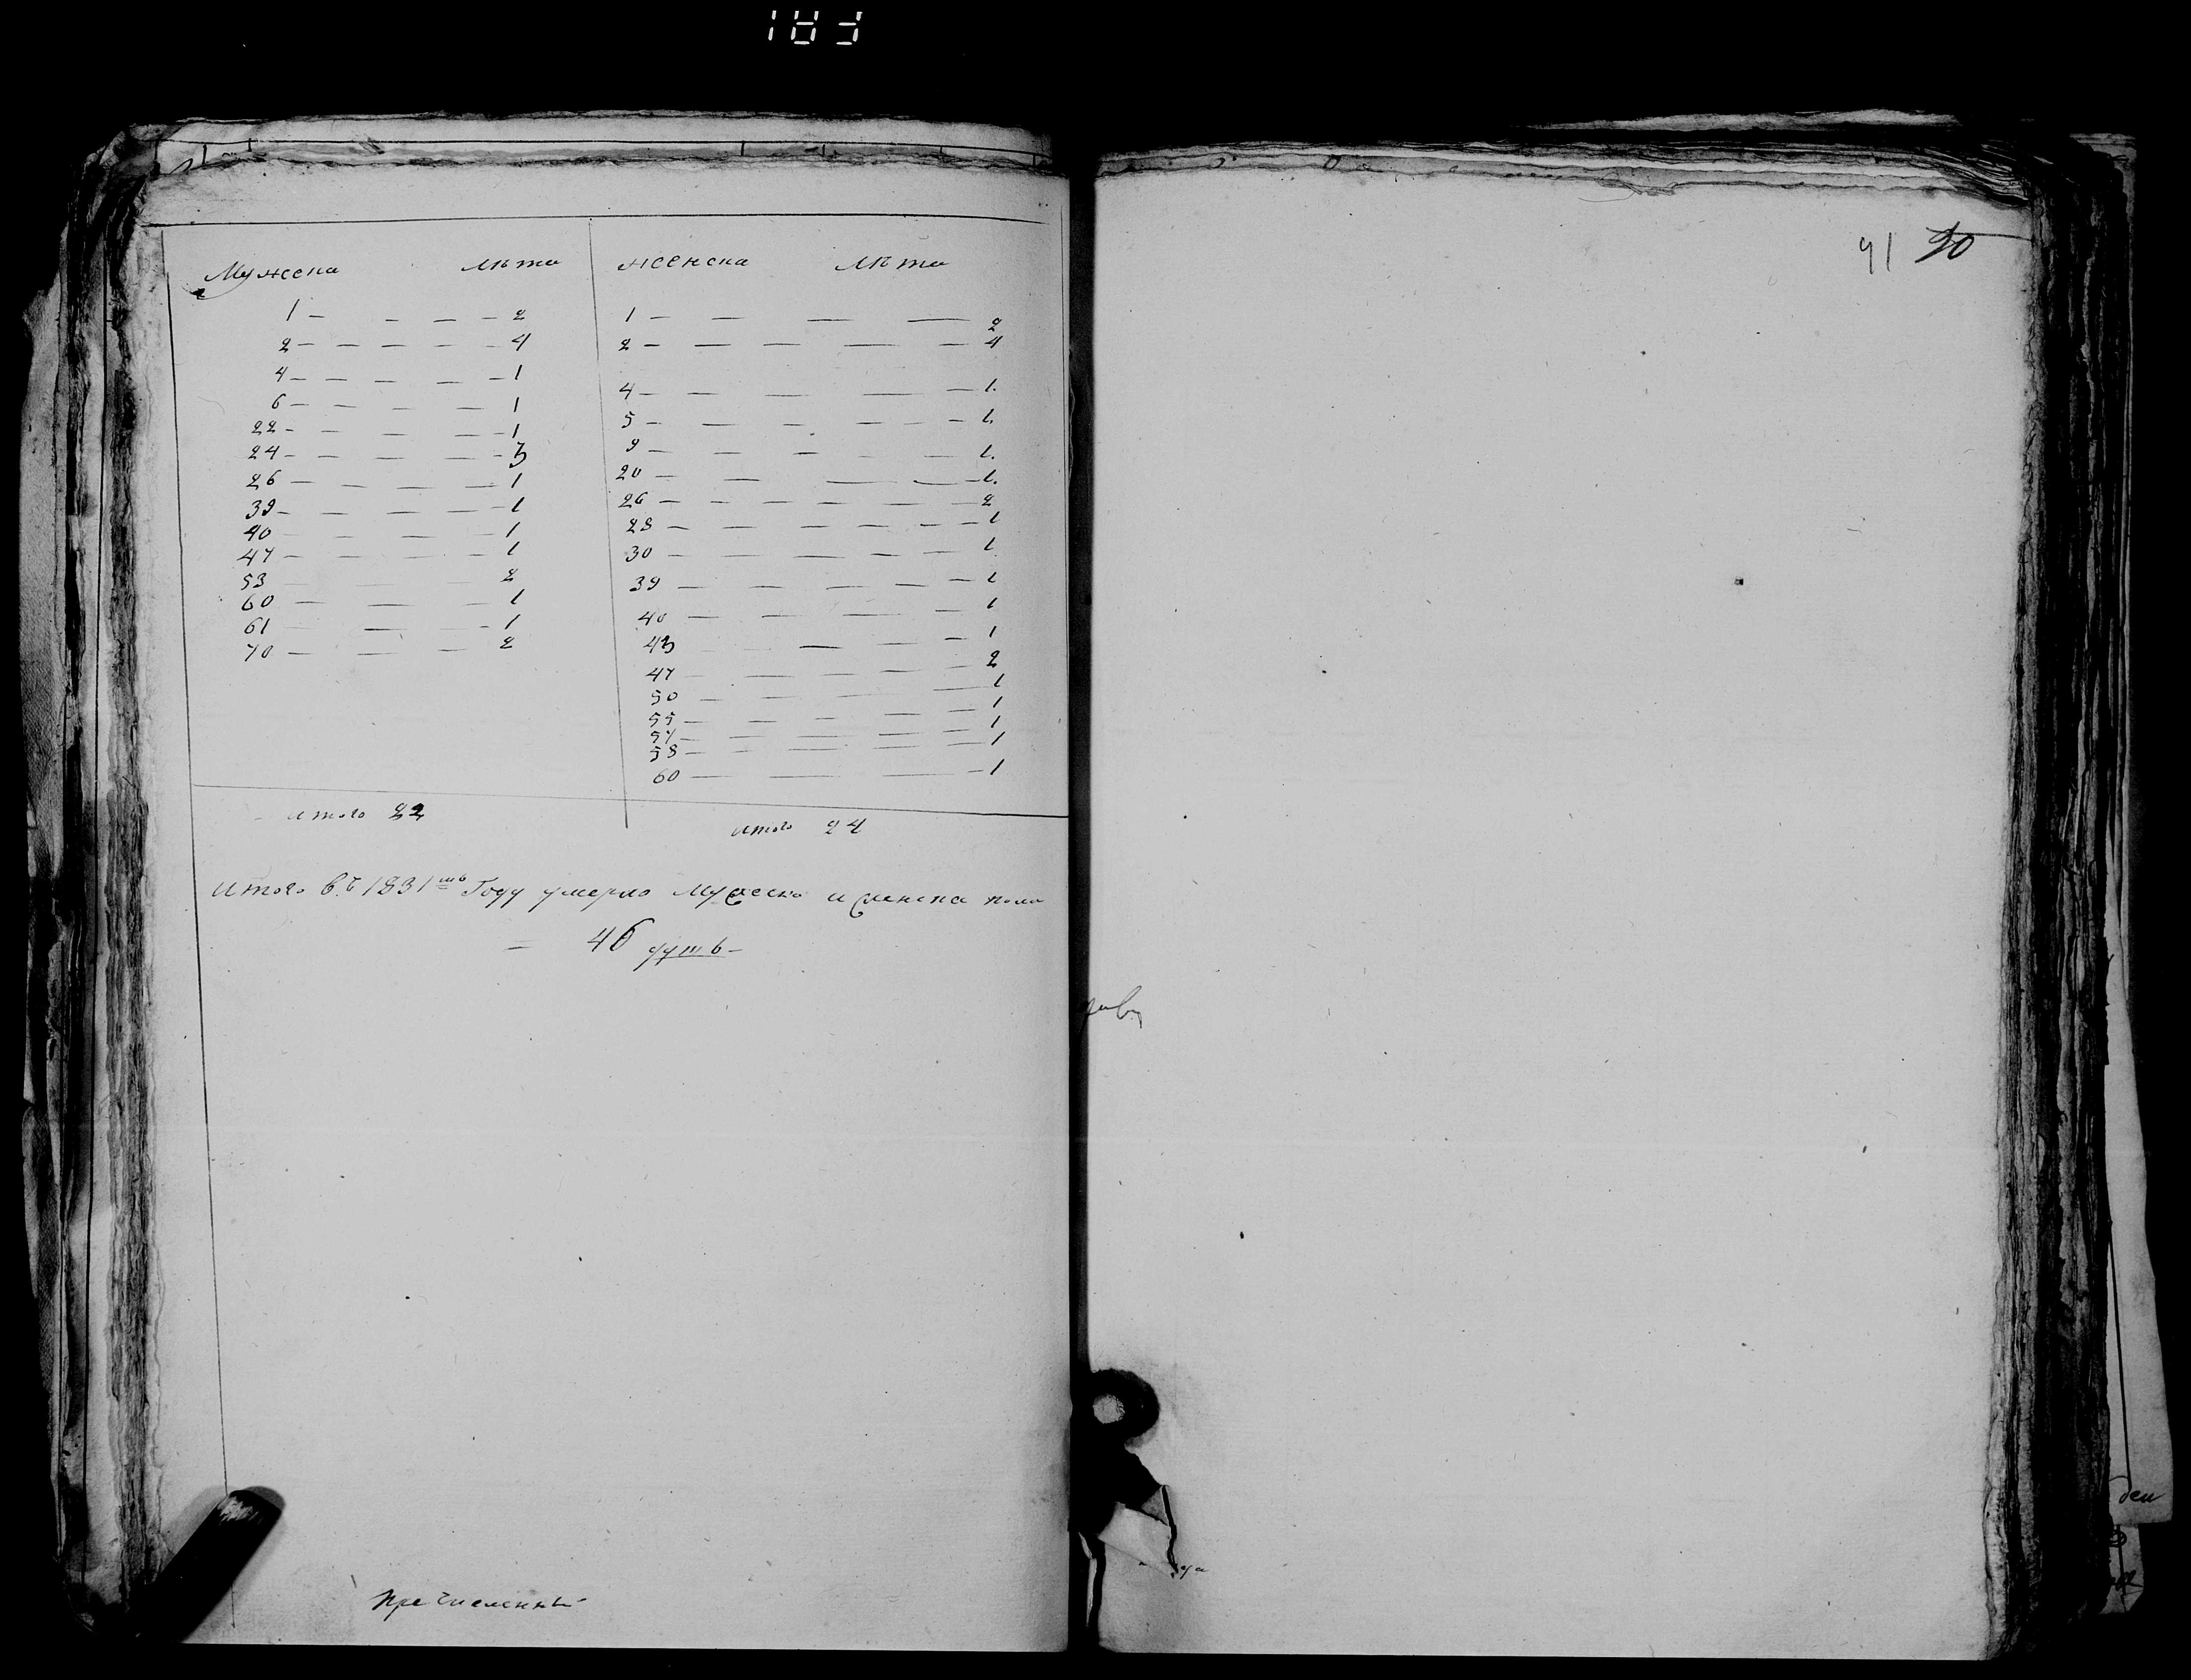 Мужеска лѣта женска лѣта
1 — — — — 2 1 — — — — 2
2 — — — — — 4 2 — — — — — 4
4 — — — — — 1 4 — — — — — 1.
6 — — — — 1 5 — — — — — — 1.
22 — — — — — 1 9 — — — — — 1.
24 — — — — — 3 20 — — — — — 1.
26 — — — — — 1 26 — — — — — — 2
39 — — — — — 1 28 — — — — — — — 1
40 — — — — 1 30 — — — — — — 1
47 — — — — — 1 39 — — — — — 1
53 — — — 2 40 — — — — — 1
60 — — — 1 43 — — — 1
61 — — — 1 47 — — — — — 2
70 — — — 2 50 — — — — 1
55 — — — — — 1
57 — — — — — 1
58 — — — — — 1
60 — — — — 1
итого 22 итого 24
Итого въ 1831мъ Году умерло Мужеска и женска пола
= 46 душъ —
41 90